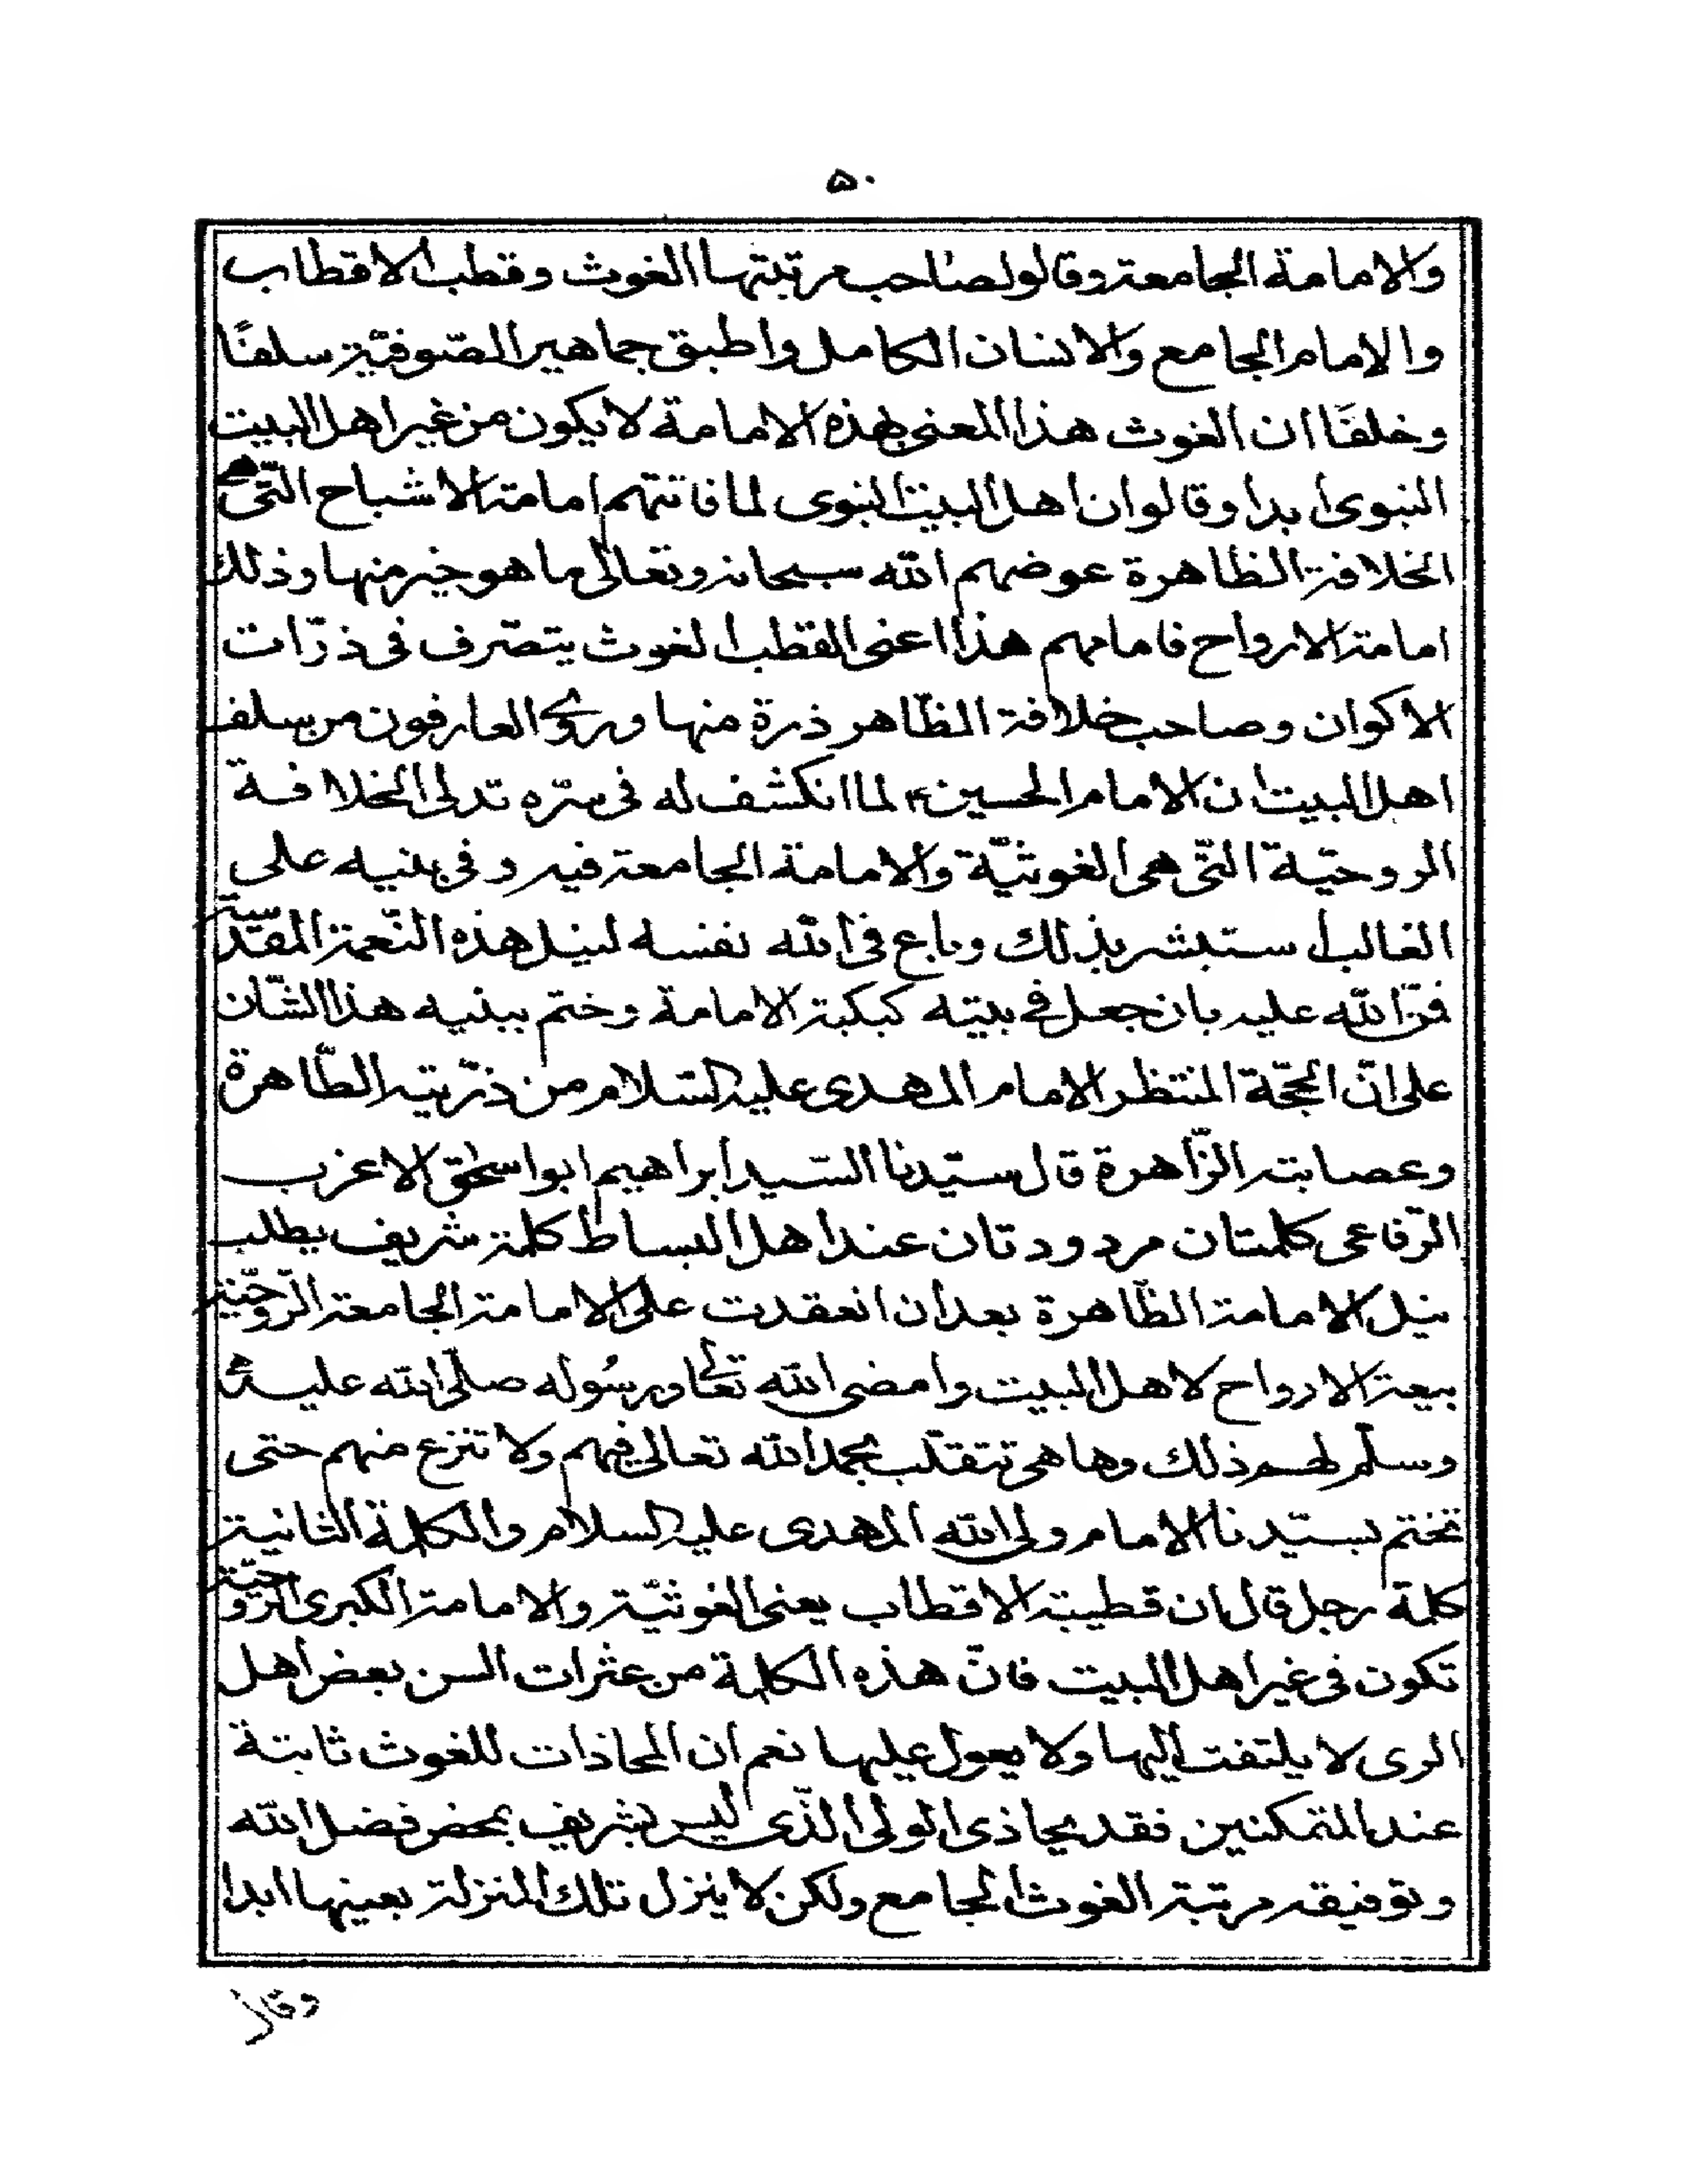 ٥٠
والامامة الجامعة وقالو لصاحب مرتبتها الغوث وقطب الاقطاب
والامام الجامع والانسان الكامل واطبق جماهير الصّوفيّة سلفًا
وخلفًا ان الغوث هذا المعنى بهذه الامامة لا يكون من غير اهل البيت
النبوى ابدا وقالوا ان اهل البيت النبوى لما فاتتهم امامة الاشباح التّى هى
الخلافة الظاهرة عوضهم الله سبحانه وتعالى ما هو خير منها وذلك
امامة الارواح فامامهم هذا اعنى القطب الغوث يتصّرف فى ذرّات
الاكوان وصاحب خلافة الظّاهر ذرة منها وروى العارفون من سلف
اهل البيت ان الامام الحسين ع لما انكشف له فى سرّه تدلى الخلافة
الروحيّة التّى هى الغوثيّة والامامة الجامعة فيه وفى بنيه على
الغالب استبشر بذلك وباع فى الله نفسه لنيل هذه النّعمة المقدّسة
فمنّ الله عليه بان جعل فى بيته كبكبة الامامة وختم ببنيه هذا الشّان
على انّ الحجّة المنتظر الامام المهدى عليه السّلام من ذرّيته الطّاهرة
وعصابته الزّاهرة قال سيّدنا السّيد ابراهيم ابو اسحق الاعزب
الرّفاعى كلمتان مردودتان عند اهل البساط كلمة شريف يطلب
نيل الامامة الظّاهرة بعد ان انعقدت على الامامة الجامعة الرّوحيّة
بيعة الارواح لاهل البيت وامضى الله تعالى ورسُوله صلّى الله عليه
وسلّم لهم ذلك وها هى تتقلّب بحمد الله تعالى فيهم ولا تنزع منهم حتى
تختم بسيّدنا الامام ولى الله المهدى عليه السلام والكلمة الثانية
كلمة رجل قال ان قطبية الاقطاب يعنى الغوثيّة والامامة الكبرى الروحيّة
تكون فى غير اهل البيت فانّ هذه الكلمة من عثرات السن بعض اهل
الرى لا يلتفت اليها ولا يعول عليها نعم ان المحاذات للغوث ثابتة
عند المتمكنين فقد يحاذى الولى الذّى ليس بشريف بمحض فضل الله
وتوفيقه مرتبة الغوث الجامع ولكن لا ينزل تلك المنزلة بعينها ابدا
وقال